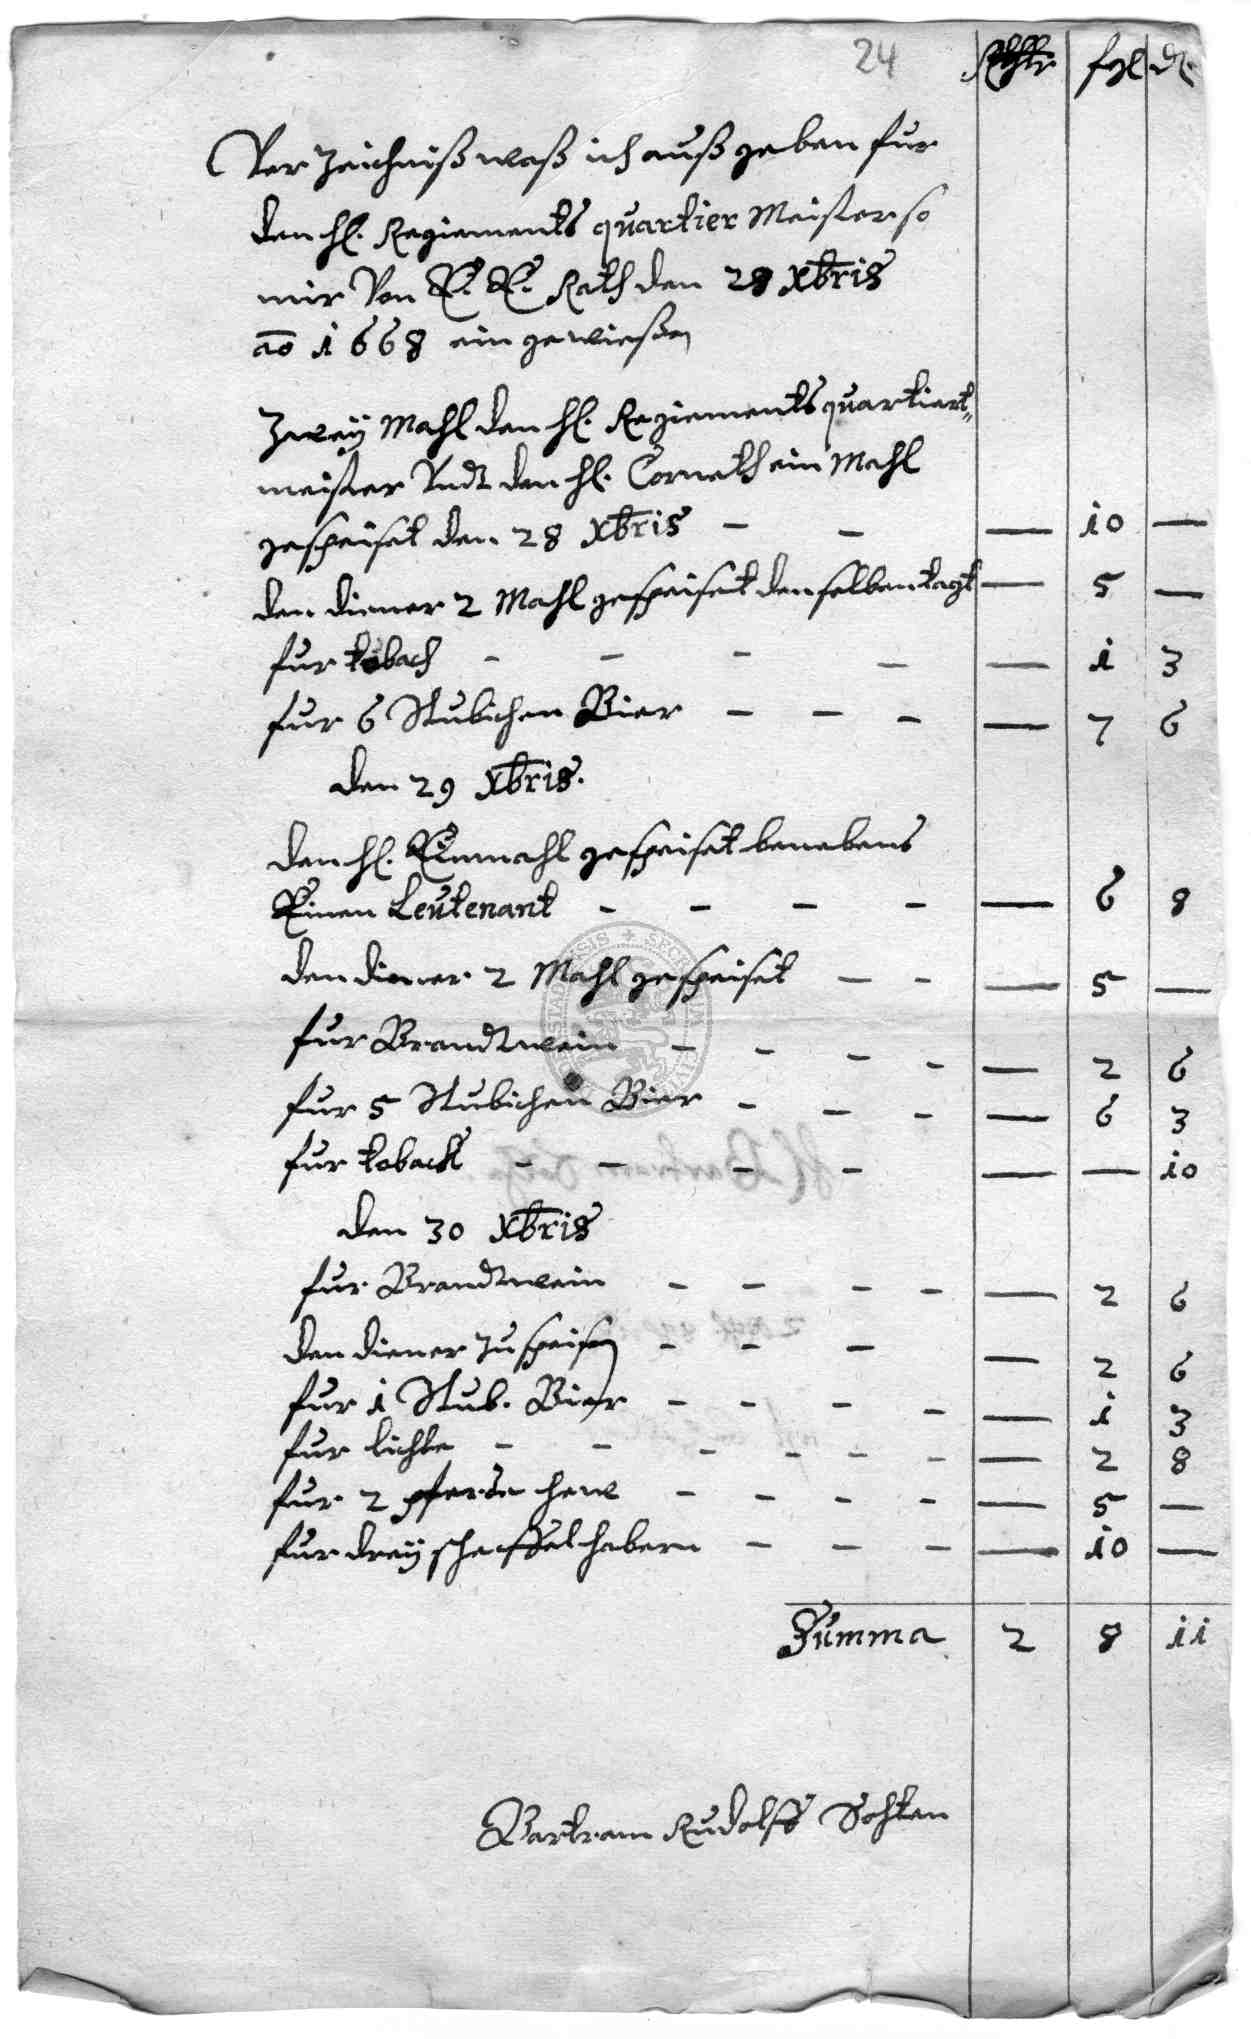 24 Rthlr ßgl d.
Verzeichniß waß ich außgeben fur
den hl. Regiements quartier Meister so
mir Von E. E. Rath den 28 Xbris
ao 1668 ein gewießen
Zweÿ Mahl den hl. Regiements quartiert=
meister Undt den hl. Corneth ein Mahl
gespeiset den 28 Xbris - - — 10 —
den diener 2 Mahl gespeiset denselben tagk — 5 —
fur toback - - - - — 1 3
fur 6 Stubichen Bier - - - — 7 6
den 29 Xbris.
den hl. Einmahl gespeiset benebens
Einen Leutenant - - - - — 6 8
den diener 2 Mahl gespeiset - - — 5 —
fur Brandtwein - - - - — 2 6
fur 5 Stubichen Bier - - - — 6 3
fur toback - - - - — — 10
den 30 Xbris
fur Brandtwein - - - - — 2 6
den diener zu speisen - - - — 2 6
fur 1 Stub. Bier - - - - — 1 3
fur lichte - - - - - - — 2 8
fur 2 pferde hew - - - - — 5 —
fur dreÿ scheffel habern - - - — 10 —
Summa 2 8 11
Bartram Rudolff Sohten